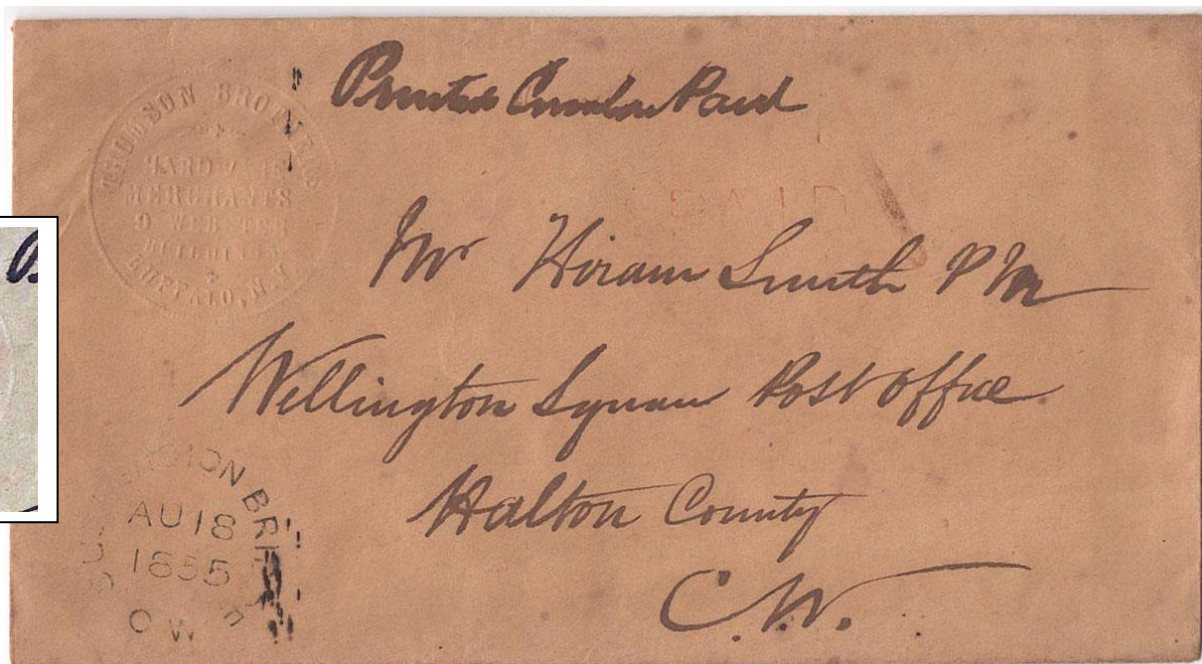 Printed Circular Paid
THOMSON BROTHERS
HARDWARE
MERCHANTS
9 WEBSTER
BUILDINGS
BUFFALO, N.Y.
PAID
Mr Hiram Smith P M
Wellington Square Post Office
Halton County
C.W.
SUSPENSION BRIDGE
AU 18
1855
C W